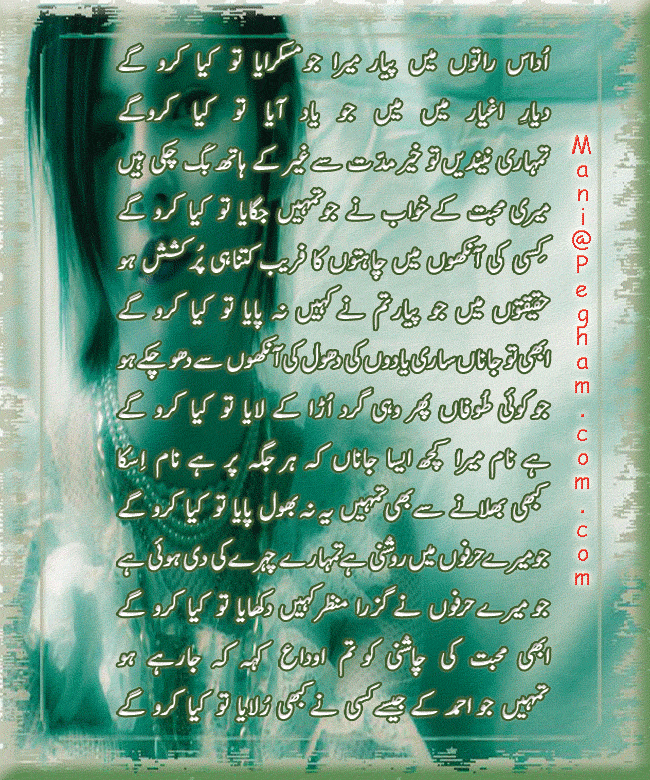 اُداس راتوں میں پیار میرا جو مسکرایا تو کیا کرو گے
دیار اغیار میں میں جو یاد آیا تو کیا کروگے
تمہاری نیندیں تو خیر مدّت سے غیر کے ہاتھ بِک چکی ہیں
میری محبت کے خواب نے جو تمہیں جگایا تو کیا کرو گے
کِسی کی آنکھوں میں چاہتوں کا فریب کتنا ہی پُر کشش ہو
حقیقتوں میں جو پیار تم نے کہیں نہ پایا تو کیا کرو گے
ابھی تو جاناں ساری یادوں کی دھول کی آنکھوں سے دھو چکے ہو
جو کوئی طُوفاں پھر وہی گرد اُڑا کے لایا تو کیا کرو گے
ہے نام میرا کچھ ایسا جاناں کہ ہر جگہ پر ہے نام اِسکا
کبھی بھلانے سے بھی تمہیں یہ نہ بھول پایا تو کیا کرو گے
جو میرے حرفوں میں روشنی ہے تمہارے چہرے کی دی ہوئی ہے
جو میرے حرفوں نے گزرا منظر کہیں دکھایا تو کیا کرو گے
ابھی محبت کی چاشنی کو تم اوداع کہہ کہ جارہے ہو
تمہیں جو احمد کے جیسے کسی نے کبھی رُلایا تو کیا کرو گے
Mani@Pegham.com.com